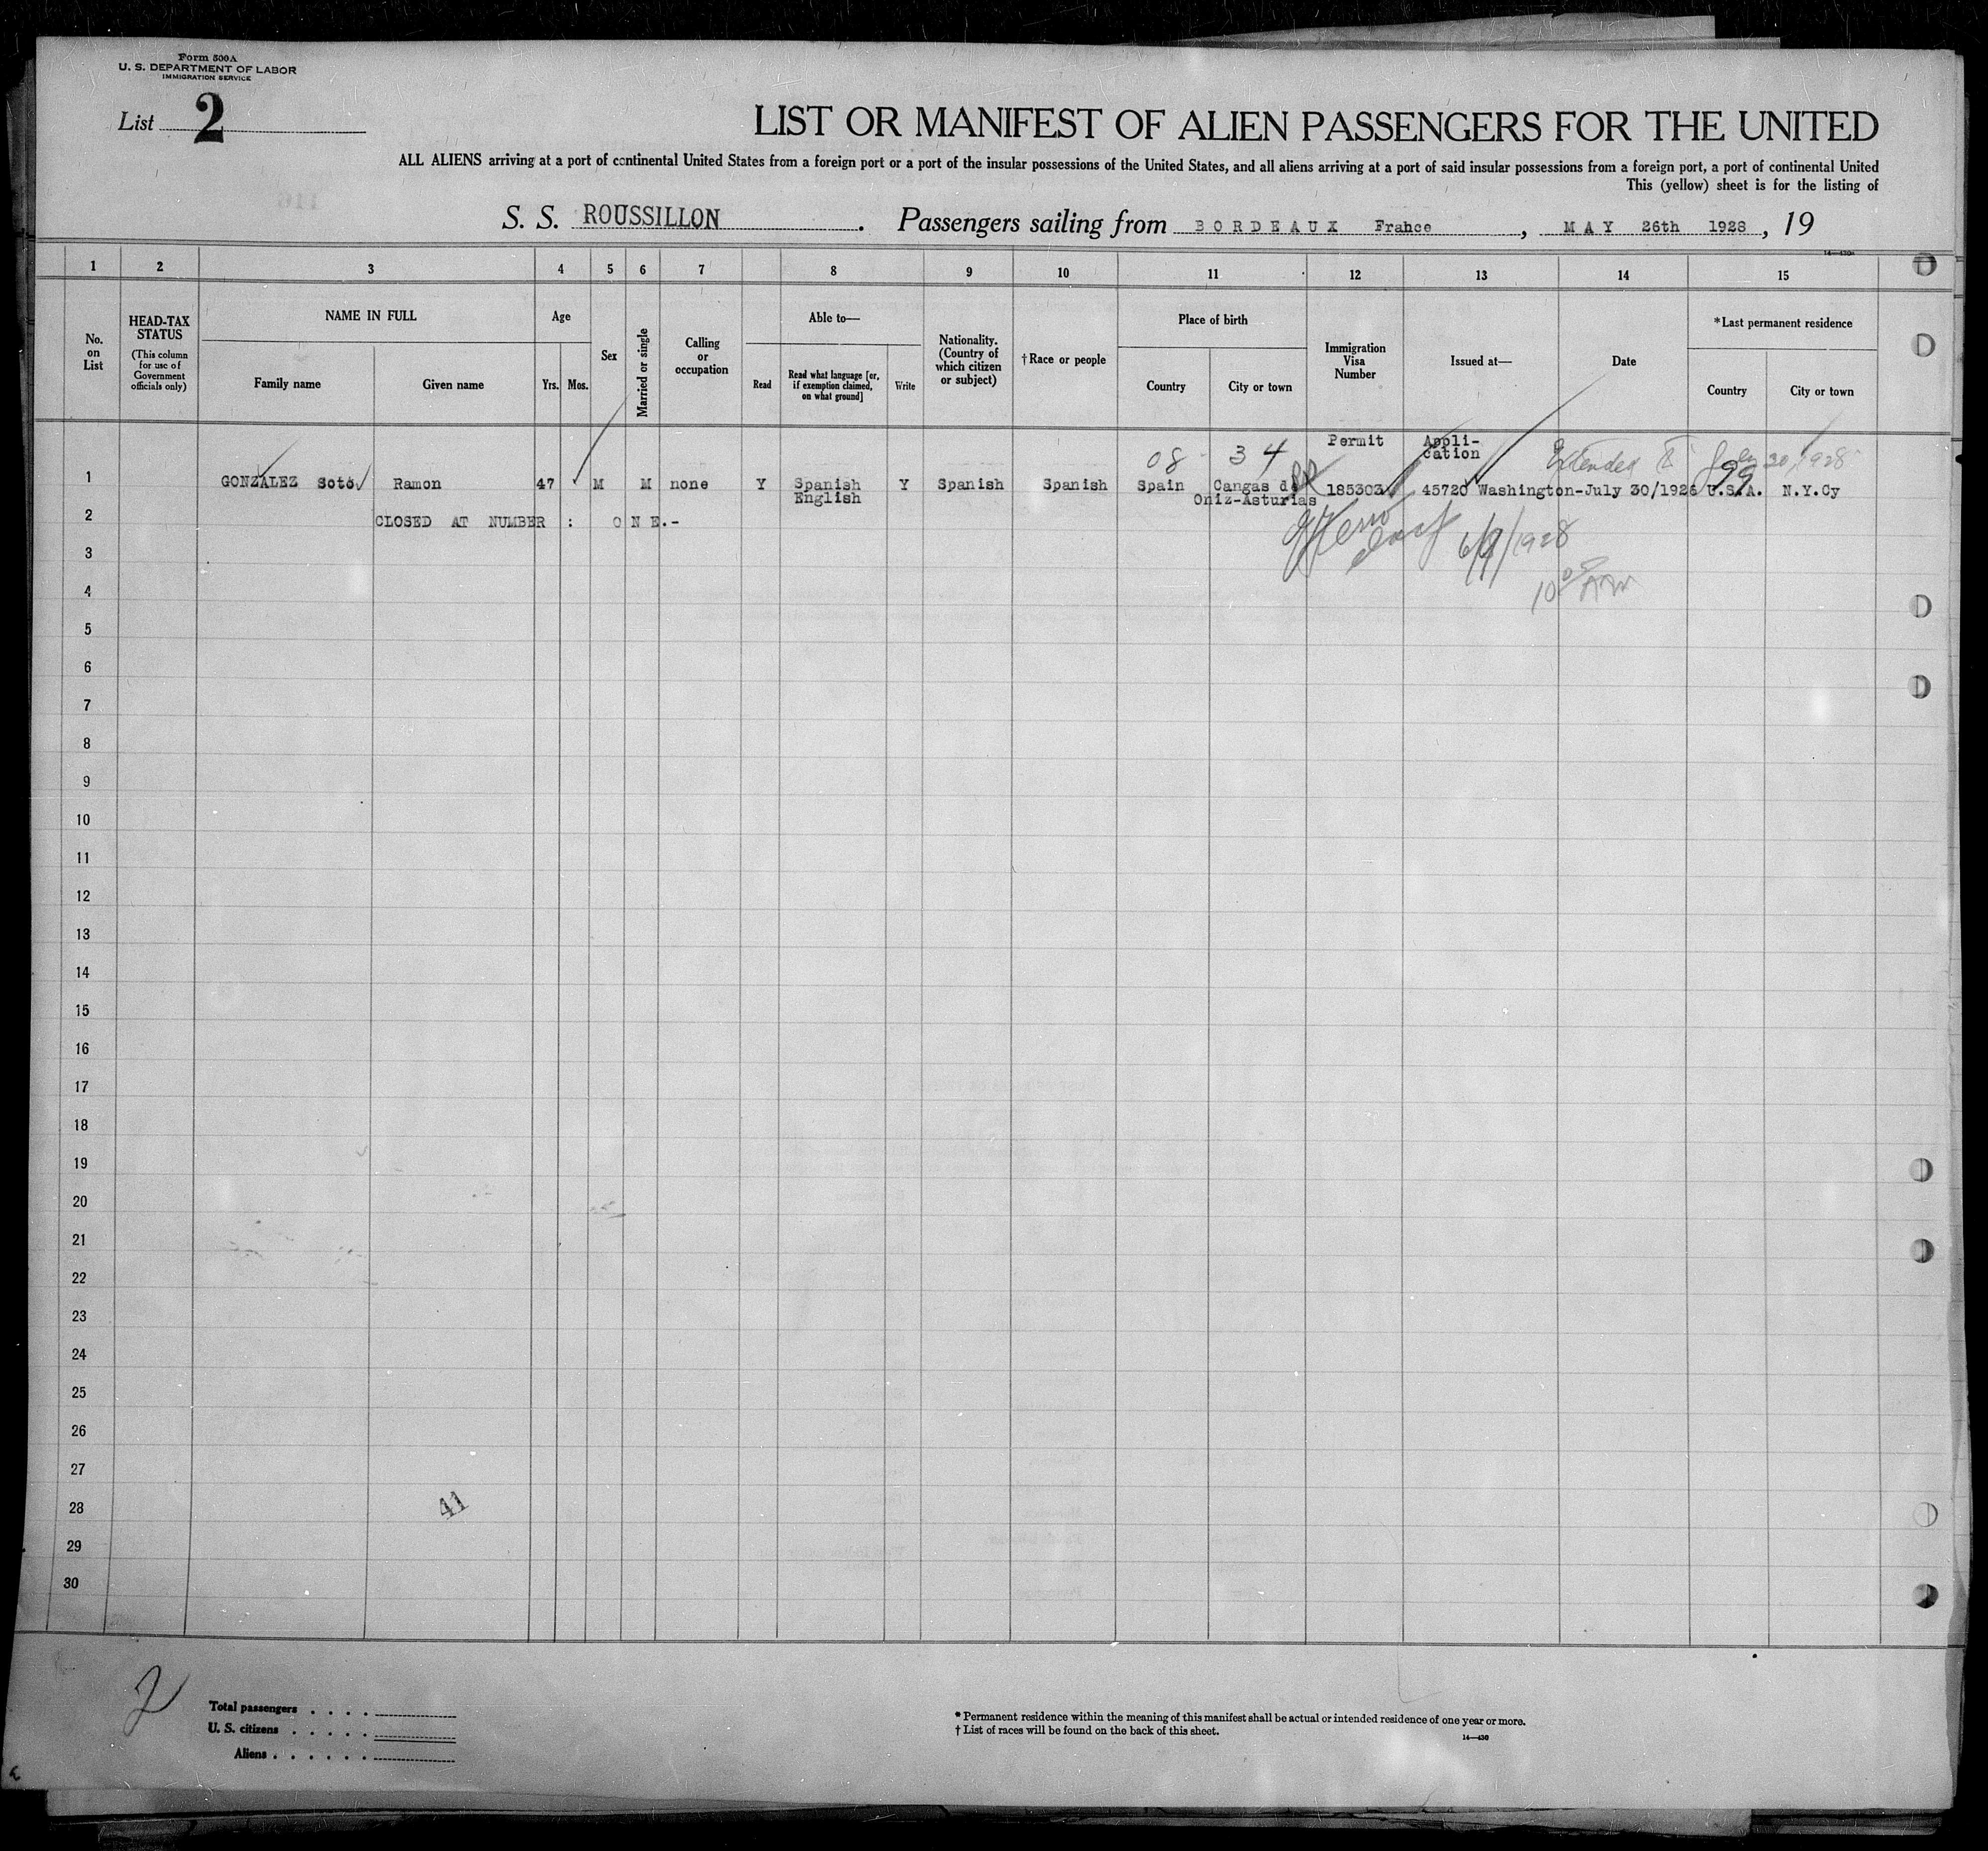 Form 500A
U. S. DEPARTMENT OF LABOR
IMMIGRATION SERVICE
List 2
LIST OR MANIFEST OF ALIEN PASSENGERS FOR THE UNITED
ALL ALIENS arriving at a port of continental United States from a foreign port or a port of the insular possessions of the United States, and all aliens arriving at a port of said insular possessions from a foreign port, a port of continental United
This (yellow) sheet is for the listing of
S. S. ROUSSILLON. Passengers sailing from BORDEAUX France, MAY 26th 1928, 19
14—430
1 2 3 4 5 6 7 8 9 10 11 12 13 14 15
No. on List
HEAD-TAX STATUS
(This column for use of Government officials only)
NAME IN FULL
Family name
Given name
Age
Yrs.
Mos.
Sex
Married or single
Calling or occupation
Able to—
Read
Read what language [or, if exemption claimed, on what ground]
Write
Nationality. (Country of which citizen or subject)
†Race or people
Place of birth
Country
City or town
Immigration Visa Number
Issued at—
Date
*Last permanent residence
Country
City or town
Permit Appli-
cation
08 34 Extended July 30, 1928
99
1 GONZALEZ Soto Ramon 47 M M none Y Spanish Y Spanish Spanish Spain Cangas de 185303 45720 Washington-July 30/1926 U.S.A. N.Y.Cy
English Oniz-Asturias
2 CLOSED AT NUMBER : ONE.-
6/9/1928
10 00 AM
3
4
5
6
7
8
9
10
11
12
13
14
15
16
17
18
19
20
21
22
23
24
25
26
27
28
29
30
41
2
Total passengers . . . .
U. S. citizens . . . . .
Aliens . . . . . .
* Permanent residence within the meaning of this manifest shall be actual or intended residence of one year or more.
† List of races will be found on the back of this sheet.
14—430